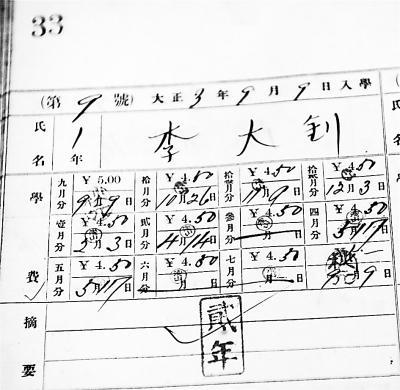 33
(第 9 號) 大正 3 年 9 月 9 日入學
氏名 1年 李大釗
學費
九月分 ¥ 5.00 9月9日
拾月分 ¥ 4. 10月26日
拾壹月分 ¥ 4.50 11月9日
拾貳月分 ¥ 4.50 12月3日
壹月分 ¥ 4.50 月3日
貳月分 ¥ 4.50 4月14日
參月分 ¥ 4.50 月 日
四月分 ¥ 4.50 5月17日
五月分 ¥ 4.50 5月17日
六月分 ¥ 4. 月 日
七月分 ¥ 4.50 月 日
月9日
摘要
貳年